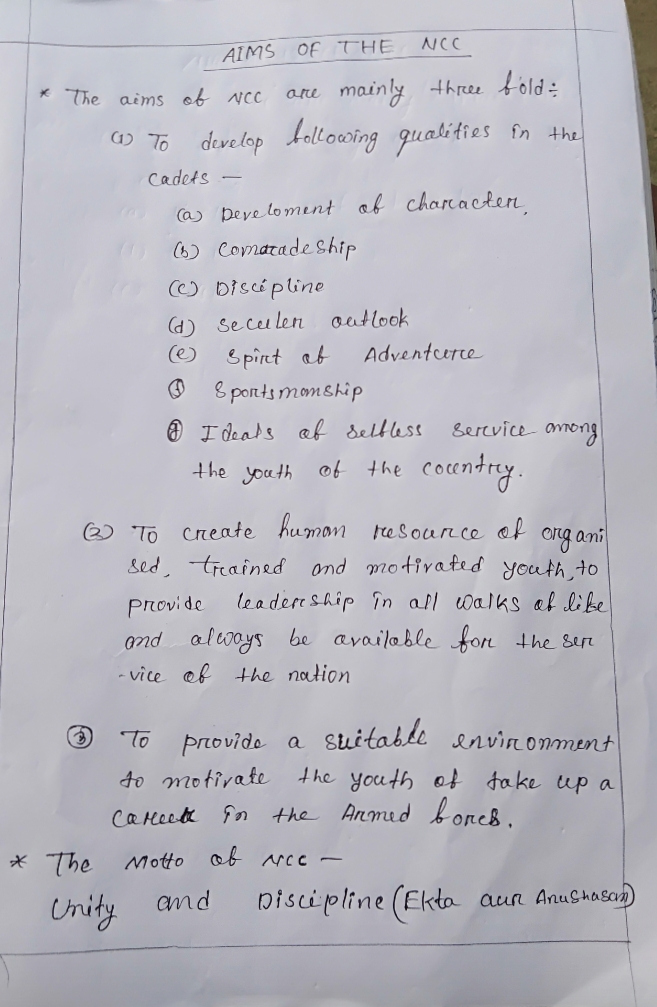 AIMS OF THE NCC
* The aims of NCC are mainly three fold÷
(1) To develop following qualities in the
cadets —
(a) Develoment of character,
(b) Comaradeship
(c) Discipline
(d) Seculer outlook
(e) Spirit of Adventure
(f) Sportsmanship
(g) Ideals of selfless service among
the youth of the country.
(2) To create human resource of organi
sed, trained and motivated youth, to
provide leadership in all walks of life
and always be available for the ser
-vice of the nation
(3) To provide a suitable environment
to motivate the youth of take up a
Career in the Armed forces.
* The Motto of NCC —
Unity and Discipline (Ekta aur Anushasan)